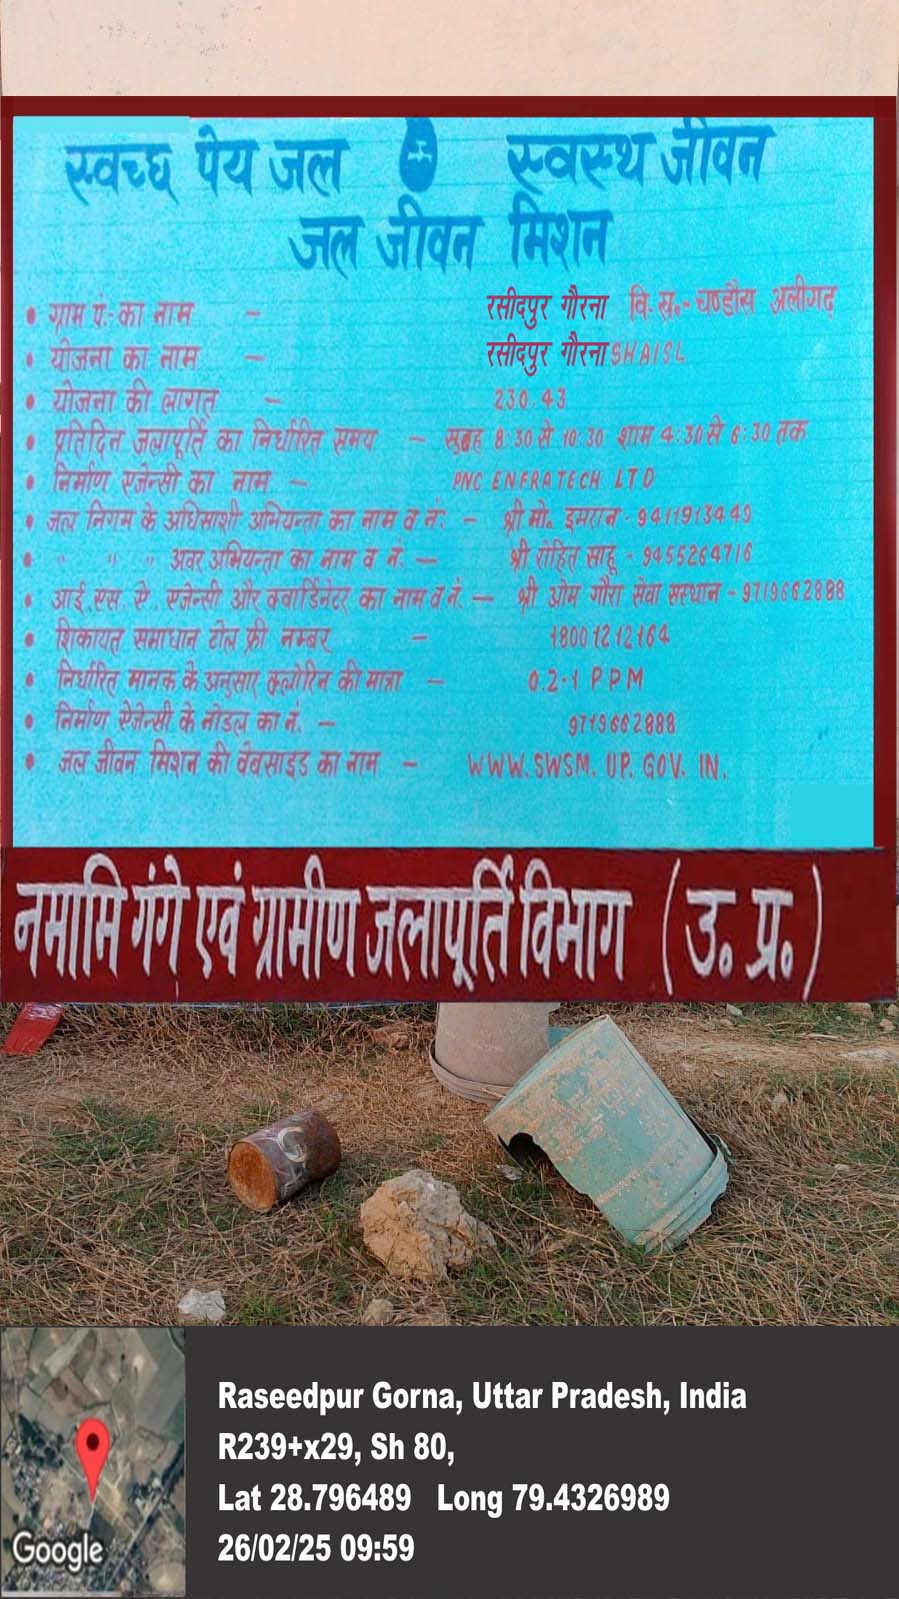 स्वच्छ पेय जल स्वस्थ जीवन
जल जीवन मिशन
• ग्राम पं:-का नाम - रसीदपुर गौरना वि. ख.- चण्डौस अलीगढ़
• योजना का नाम - रसीदपुर गौरना SHAISL
• योजना की लागत - 230.43
• प्रतिदिन जलापूर्ति का निर्धारित समय - सुबह 8:30 से 10:30 शाम 4:30 से 6:30 तक
• निर्माण एजेन्सी का नाम - PNC ENFRATECH LTD
• जल निगम के अधिसाशी अभियन्ता का नाम व नं: - श्री मो. इमरान - 9411913449
• " " " अवर अभियन्ता का नाम व नं. - श्री रोहित साहू - 9455264716
• आई. एस. ऐ. एजेन्सी और क्वार्डिनेटर का नाम व नं. - श्री ओम गौरा सेवा सस्थान - 9719662888
• शिकायत समाधान टोल फ्री नम्बर - 18001212164
• निर्धारित मानक के अनुसार क्लोरिन की मात्रा - 0.2-1 PPM
• निर्माण ऐजेन्सी के नोडल का नं. - 9719662888
• जल जीवन मिशन की वेबसाइड का नाम - WWW.SWSM. UP. GOV. IN.
नमामि गंगे एवं ग्रामीण जलापूर्ति विभाग (उ. प्र.)
Raseedpur Gorna, Uttar Pradesh, India
R239+x29, Sh 80,
Lat 28.796489 Long 79.4326989
26/02/25 09:59
Google